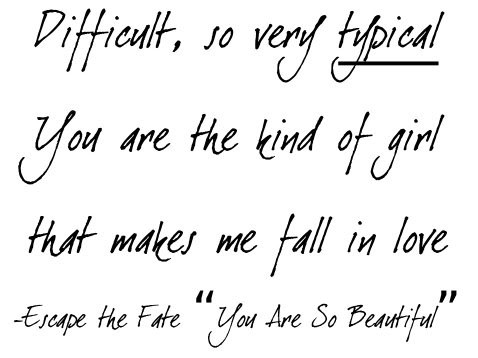 Difficult, so very typical
You are the kind of girl
that makes me fall in love
-Escape the Fate “You Are So Beautiful”